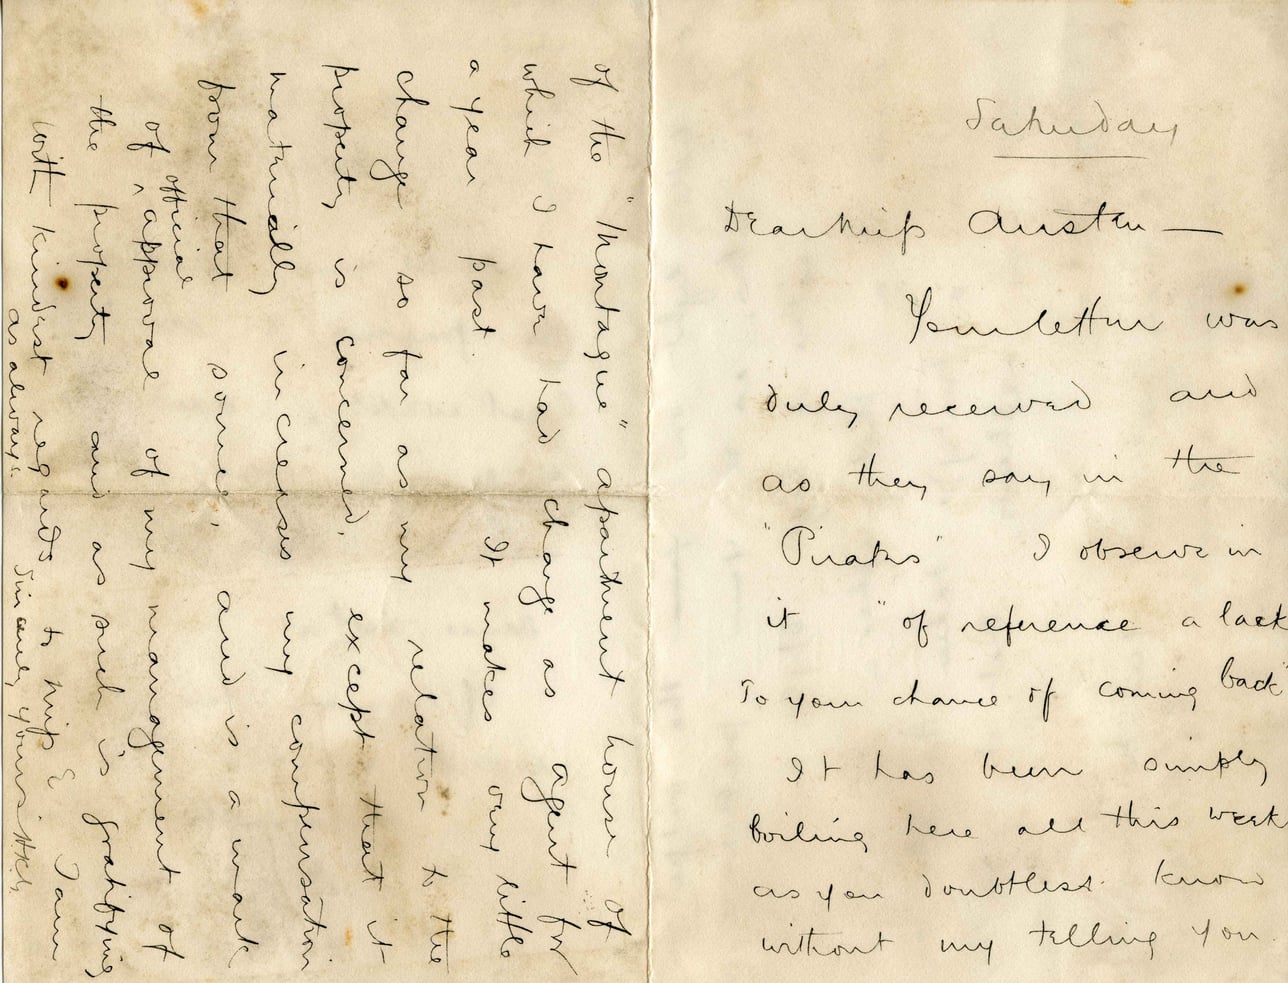 Saturday
Dear Miss Austen —
Your letter was
duly received and
as they say in the
"Pirates" I observe in
it "of reference a lack
to your chance of coming back"
It has been simply
boiling here all this week
as you doubtless know
without my telling you.
of the "Montague" apartment house of
which I have had charge as agent for
a year past. It makes very little
change so far as my relation to the
property is concerned, except that it
materially increases my compensation
from that source, and is a mark
official
of ^ approval of my management of
the property and as such is gratifying
with kindest regards to Miss E I am
as always
Sincerely yours